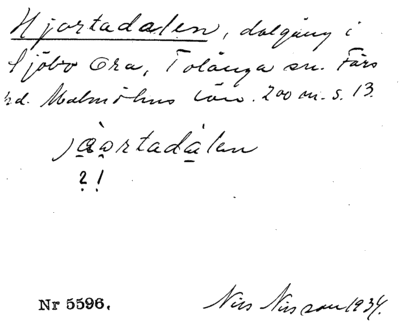 Hjortadalen, dalgång i
Sjöbo Ora, Tolånga sn. Färs
hd. Malmöhus län. 200 m. s. 13.
jàortadàlen
2 1
Nr 5596.
Nils Nilsson 1934.